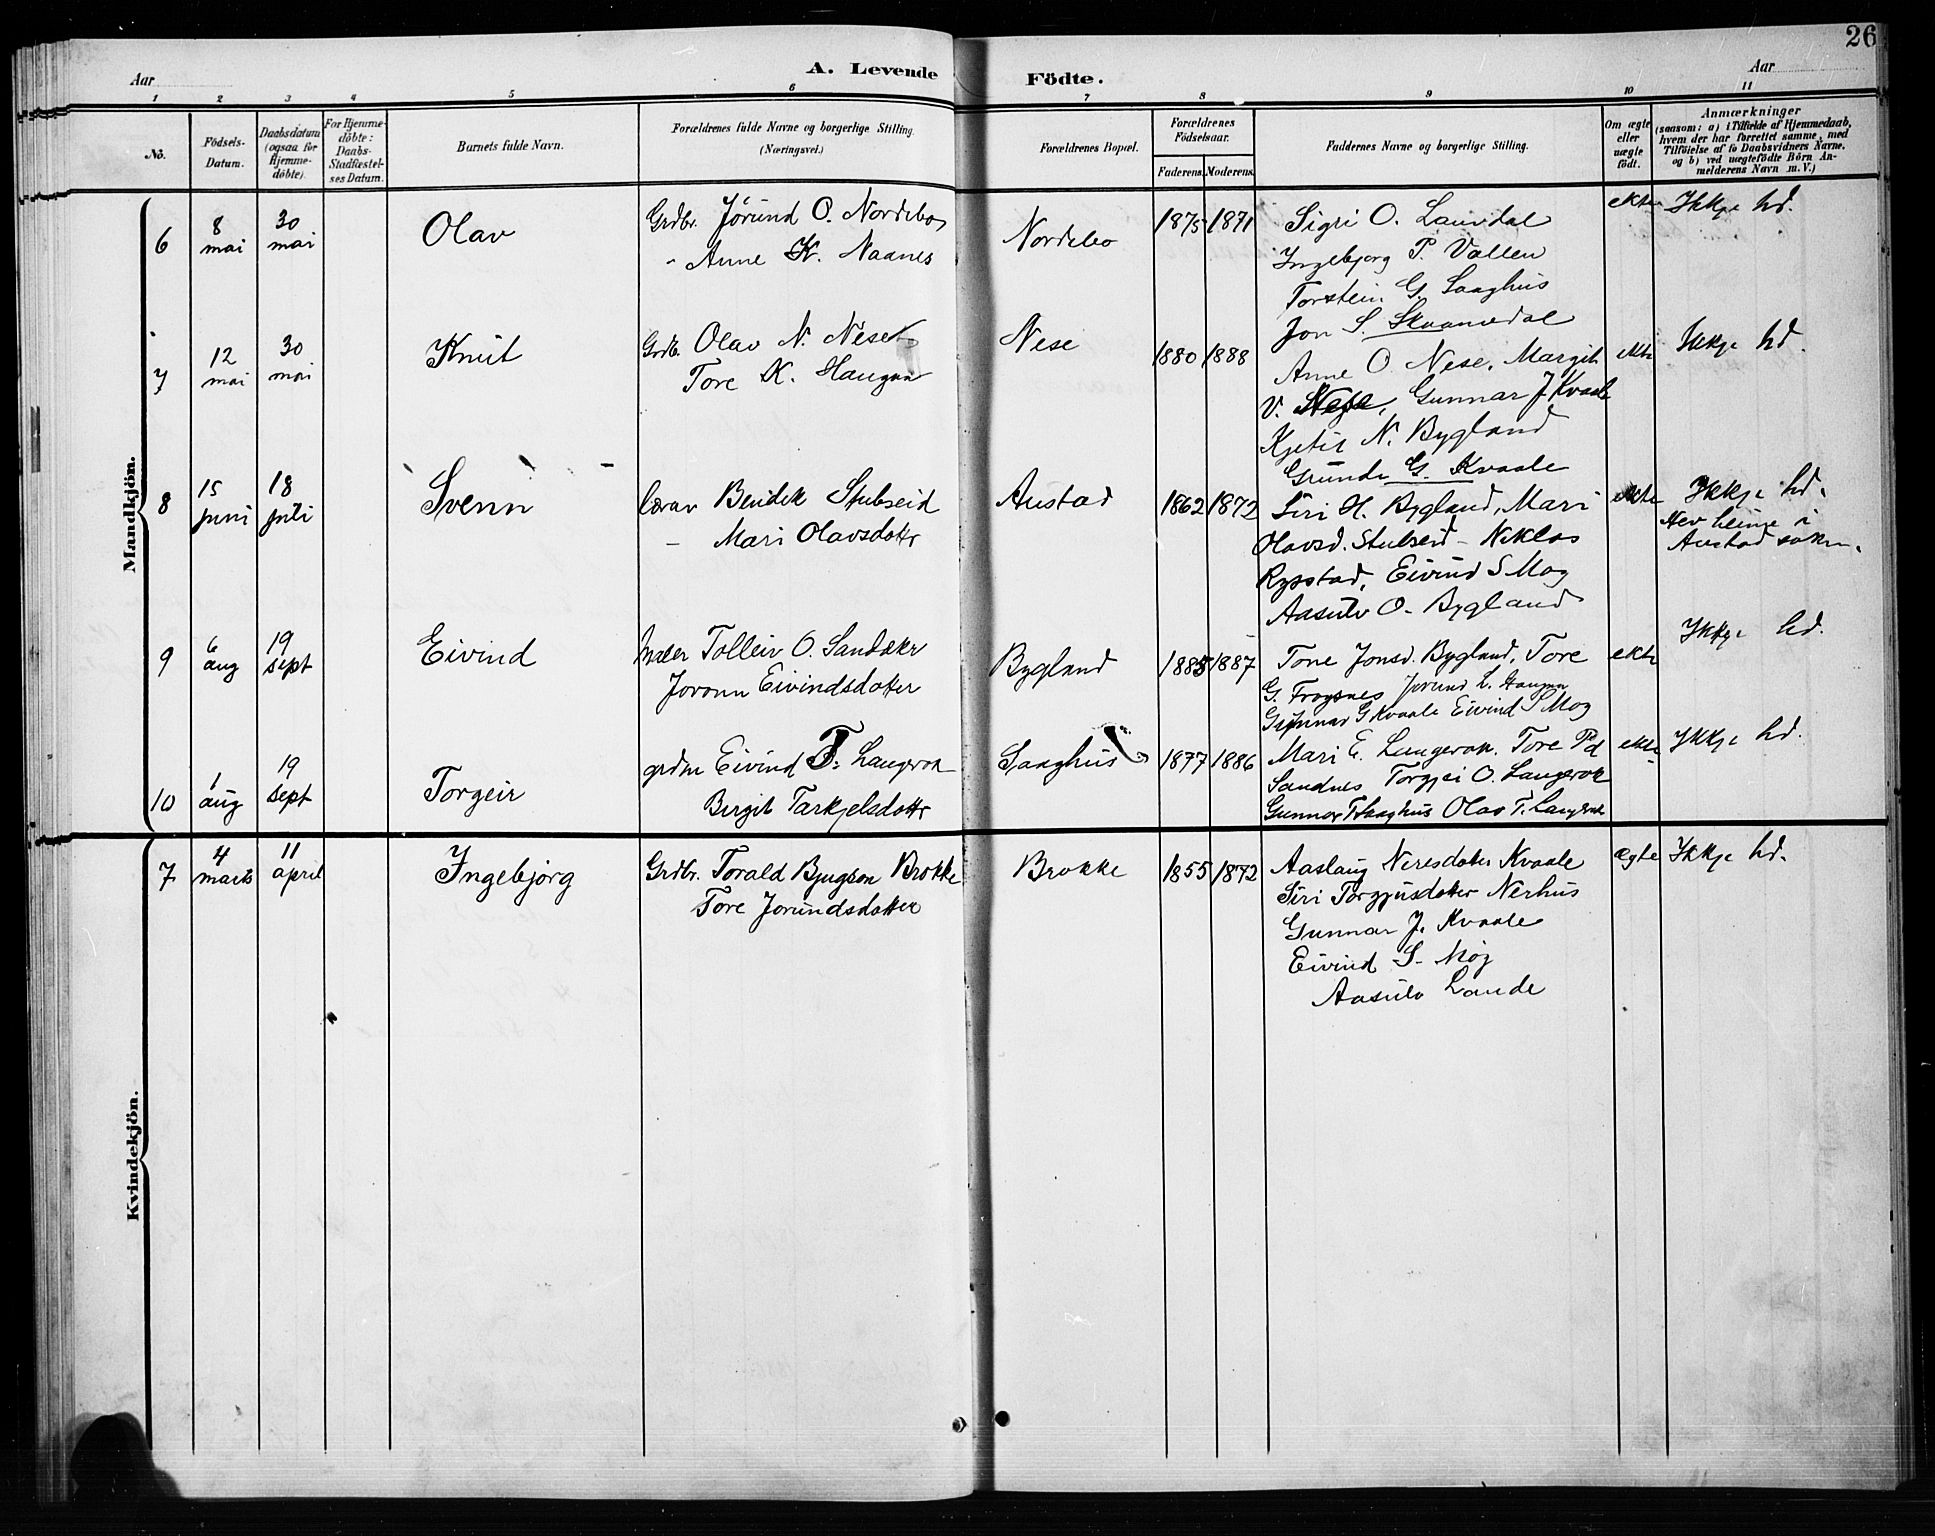 26
Aar
A. Levende
Födte.
Aar
1 2 3 4 5 6 7 8 9 10 11
No.
Födsels-
Datum.
Daabsdatum
(ogsaa for
Hjemme-
döbte).
For Hjemme-
döbte:
Daabs-
Stadfæstel-
ses Datum.
Barnets fulde Navn.
Forældrenes fulde Navne og borgerlige Stilling.
(Næringsvei.)
Forældrenes Bopæl.
Forældrenes
Födselsaar.
Faderens. Moderens.
Faddernes Navne og borgerlige Stilling.
Om ægte
eller
uægte
födt.
Anmærkninger
(saasom: a) i Tilfælde af Hjemmedaab,
hvem der har forrettet samme, med
Tilföielse af to Daabsvidners Navne,
og b) ved uægtefödte Börn An-
melderens Navn m.V.)
Mandkjön.
6
8
mai
30
mai
Olav
Grdbr. Jørund O. Nordebo
- Anne K. Naanes
Nordebo
1875 1871
Sigri O. Lauvdal
Ingebjorg P. Vallen
Torstein G. Saaghus
Jon S. Skaamedal
ekte
Ikkje hd.
7
12
mai
30
mai
Knut
Grdb. Olav N. Nese
Tore K. Haugaa
Nese
1880 1888
Anne O. Nese, Margit
V. Nese, Gunnar J Kvaale
Kjetil N. Bygland
Grunde G. Kvaale
ekte
Ikkje hd.
8
15
juni
18
juli
Svenn
lærar Bendik Stubseid
- Mari Olavsdotter
Austad
1862 1872
Siri H. Bygland, Mari
Olavsd. Stubseid - Niklos
Rysstad, Eivind S Mog
Aasulv O. Bygland
ekte
Ikkje hd.
Hev heime i
Austad sokn.
9
6
aug
19
sept
Eivind
maler Tolleiv O. Sandaker
Jorann Eivindsdotter
Bygland
1885 1887
Tone Jonsd. Bygland, Tore
G. Froysnes Jorund L. Haugaa
Gunnar G Kvaale Eivind S Mog
ekte
Ikkje hd.
10
1
aug
19
sept
Torgeir
grdm Eivind T. Langerak
Bergit Tarkjelsdotter
Saaghus
1877 1886
Mari E. Langerak. Tore Pd
Sandnes Torgjei O. Langerak
Gunnar T Saaghus Olav T. Langerak
ekte
Ikkje hd.
Kvindekjön.
7
4
marts
11
april
Ingebjørg
Grdbr. Torald Bjugson Brokke
Tore Jorundsdotter
Brokke
1855 1872
Aaslaug Neresdotter Kvaale
Siri Torgjusdotter Nerhus
Gunnar J. Kvaale
Eivind S. Mog
Aasulv Lande
ægte
Ikkje hd.